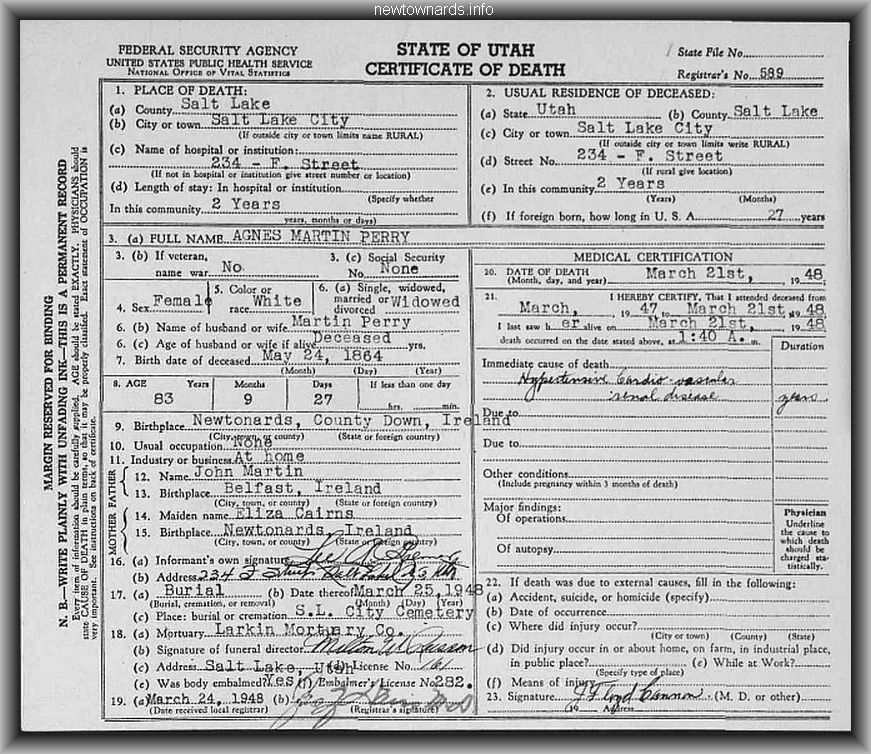 newtownards.info
FEDERAL SECURITY AGENCY
UNITED STATES PUBLIC HEALTH SERVICE
NATIONAL OFFICE OF VITAL STATISTICS
STATE OF UTAH
CERTIFICATE OF DEATH
State File No.
Registrar's No. 589
MARGIN RESERVED FOR BINDING
N. B.—WRITE PLAINLY WITH UNFADING INK—THIS IS A PERMANENT RECORD
Every item of information should be carefully supplied. AGE should be stated EXACTLY. PHYSICIANS should
state CAUSE OF DEATH in plain terms, so that it may be properly classified. Exact statement of OCCUPATION is
very important. See instructions on back of certificate.
1. PLACE OF DEATH:
(a) County Salt Lake
(b) City or town Salt Lake City
(If outside city or town limits name RURAL)
(c) Name of hospital or institution:
234 - F. Street
(If not in hospital or institution give street number or location)
(d) Length of stay: In hospital or institution
(Specify whether
In this community 2 Years
years, months or days)
2. USUAL RESIDENCE OF DECEASED:
(a) State Utah (b) County Salt Lake
(c) City or town Salt Lake City
(If outside city or town limits write RURAL)
(d) Street No. 234 - F. Street
(If rural give location)
(e) In this community 2 Years
(Years) (Months)
(f) If foreign born, how long in U. S. A. 27 years
3. (a) FULL NAME AGNES MARTIN PERRY
3. (b) If veteran, 3. (c) Social Security
name war No No. None
4. Sex Female 5. Color or race White 6. (a) Single, widowed, married or divorced Widowed
6. (b) Name of husband or wife Martin Perry
6. (c) Age of husband or wife if alive Deceased yrs.
7. Birth date of deceased May 24, 1864
(Month) (Day) (Year)
8. AGE Years Months Days If less than one day
83 9 27 hrs. min.
9. Birthplace Newtonards, County Down, Ireland
(City, town, or county) (State or foreign country)
10. Usual occupation None
11. Industry or business At home
FATHER
12. Name John Martin
13. Birthplace Belfast, Ireland
(City, town, or county) (State or foreign country)
MOTHER
14. Maiden name Eliza Cairns
15. Birthplace Newtonards, Ireland
(City, town, or county) (State or foreign country)
16. (a) Informant's own signature
(b) Address 234
17. (a) Burial (b) Date thereof March 25, 1948
(Burial, cremation, or removal) (Month) (Day) (Year)
(c) Place: burial or cremation S.L. City Cemetery
18. (a) Mortuary Larkin Mortuary Co.
(b) Signature of funeral director
(c) Address Salt Lake, Utah (d) License No. 161
(e) Was body embalmed? Yes (f) Embalmer's License No. 282.
19. (a) March 24, 1948 (b)
(Date received local registrar) (Registrar's signature)
MEDICAL CERTIFICATION
20. DATE OF DEATH March 21st, 1948
(Month, day, and year)
21. I HEREBY CERTIFY, That I attended deceased from
March, 1947 to March 21st, 1948
I last saw her alive on March 21st, 1948
death occurred on the date stated above, at 1:40 A. m.
Duration
Immediate cause of death
Hypertensive Cardio-vascular
renal disease years
Due to
Due to
Other conditions
(Include pregnancy within 3 months of death)
Major findings:
Of operations
Of autopsy
Physician
Underline
the cause to
which death
should be
charged sta-
tistically.
22. If death was due to external causes, fill in the following:
(a) Accident, suicide, or homicide (specify)
(b) Date of occurrence
(c) Where did injury occur?
(City or town) (County) (State)
(d) Did injury occur in or about home, on farm, in industrial place,
in public place? (e) While at Work?
(Specify type of place)
(f) Means of injury
23. Signature J Floyd Cannon (M. D. or other)
Address